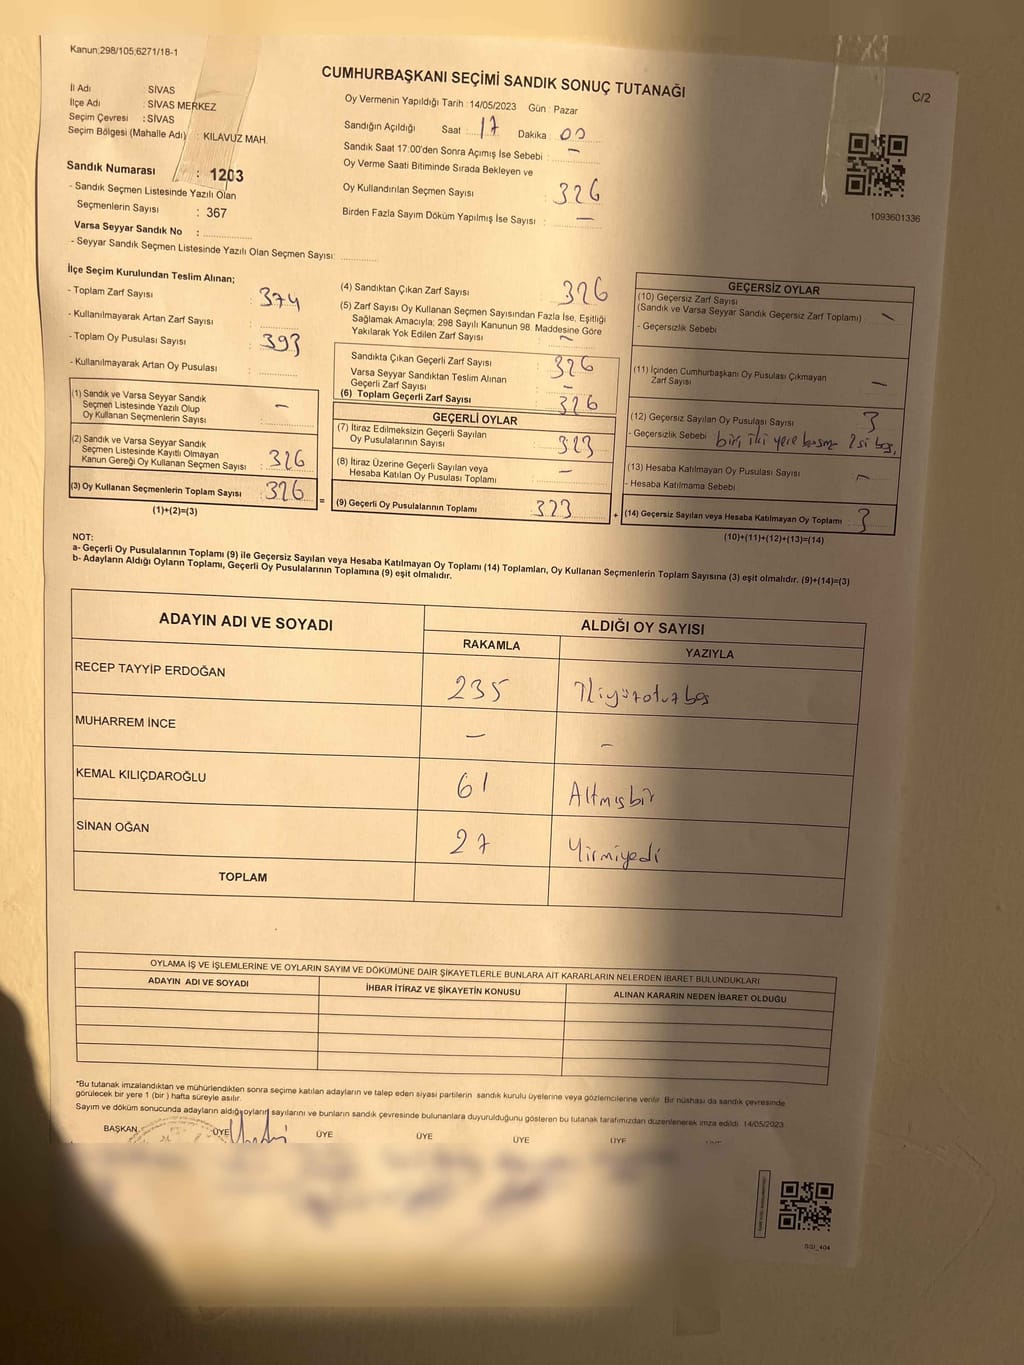 Kanun;298/105;6271/18-1
CUMHURBAŞKANI SEÇİMİ SANDIK SONUÇ TUTANAĞI
C/2
İl Adı : SİVAS
İlçe Adı : SİVAS MERKEZ
Seçim Çevresi : SİVAS
Seçim Bölgesi (Mahalle Adı) : KILAVUZ MAH.
Sandık Numarası : 1203
- Sandık Seçmen Listesinde Yazılı Olan
Seçmenlerin Sayısı : 367
Varsa Seyyar Sandık No :
- Seyyar Sandık Seçmen Listesinde Yazılı Olan Seçmen Sayısı:
Oy Vermenin Yapıldığı Tarih : 14/05/2023 Gün : Pazar
Sandığın Açıldığı Saat : 17 Dakika : 00
Sandık Saat 17:00'den Sonra Açımış İse Sebebi : –
Oy Verme Saati Bitiminde Sırada Bekleyen ve
Oy Kullandırılan Seçmen Sayısı : 326
Birden Fazla Sayım Döküm Yapılmış İse Sayısı : –
1093601336
İlçe Seçim Kurulundan Teslim Alınan;
- Toplam Zarf Sayısı : 374
- Kullanılmayarak Artan Zarf Sayısı :
- Toplam Oy Pusulası Sayısı : 393
- Kullanılmayarak Artan Oy Pusulası :
(1) Sandık ve Varsa Seyyar Sandık
Seçmen Listesinde Yazılı Olup
Oy Kullanan Seçmenlerin Sayısı : –
(2) Sandık ve Varsa Seyyar Sandık
Seçmen Listesinde Kayıtlı Olmayan
Kanun Gereği Oy Kullanan Seçmen Sayısı : 326
(3) Oy Kullanan Seçmenlerin Toplam Sayısı : 326
(1)+(2)=(3)
(4) Sandıktan Çıkan Zarf Sayısı : 326
(5) Zarf Sayısı Oy Kullanan Seçmen Sayısından Fazla İse, Eşitliği
Sağlamak Amacıyla; 298 Sayılı Kanunun 98. Maddesine Göre
Yakılarak Yok Edilen Zarf Sayısı : –
Sandıkta Çıkan Geçerli Zarf Sayısı : 326
Varsa Seyyar Sandıktan Teslim Alınan
Geçerli Zarf Sayısı : –
(6) Toplam Geçerli Zarf Sayısı : 326
GEÇERLİ OYLAR
(7) İtiraz Edilmeksizin Geçerli Sayılan
Oy Pusulalarının Sayısı : 323
(8) İtiraz Üzerine Geçerli Sayılan veya
Hesaba Katılan Oy Pusulası Toplamı : –
= (9) Geçerli Oy Pusulalarının Toplamı : 323
GEÇERSİZ OYLAR
(10) Geçersiz Zarf Sayısı
(Sandık ve Varsa Seyyar Sandık Geçersiz Zarf Toplamı) : –
- Geçersizlik Sebebi
(11) İçinden Cumhurbaşkanı Oy Pusulası Çıkmayan
Zarf Sayısı : –
(12) Geçersiz Sayılan Oy Pusulası Sayısı : 3
- Geçersizlik Sebebi : biri iki yere basma 2si boş.
(13) Hesaba Katılmayan Oy Pusulası Sayısı : –
- Hesaba Katılmama Sebebi
+ (14) Geçersiz Sayılan veya Hesaba Katılmayan Oy Toplamı : 3
(10)+(11)+(12)+(13)=(14)
NOT:
a- Geçerli Oy Pusulalarının Toplamı (9) ile Geçersiz Sayılan veya Hesaba Katılmayan Oy Toplamı (14) Toplamları, Oy Kullanan Seçmenlerin Toplam Sayısına (3) eşit olmalıdır. (9)+(14)=(3)
b- Adayların Aldığı Oyların Toplamı, Geçerli Oy Pusulalarının Toplamına (9) eşit olmalıdır.
ADAYIN ADI VE SOYADI
ALDIĞI OY SAYISI
RAKAMLA YAZIYLA
RECEP TAYYİP ERDOĞAN 235 İkiyüzotuzbeş
MUHARREM İNCE – –
KEMAL KILIÇDAROĞLU 61 Altmışbir
SİNAN OĞAN 27 Yirmiyedi
TOPLAM
OYLAMA İŞ VE İŞLEMLERİNE VE OYLARIN SAYIM VE DÖKÜMÜNE DAİR ŞİKAYETLERLE BUNLARA AİT KARARLARIN NELERDEN İBARET BULUNDUKLARI
ADAYIN ADI VE SOYADI İHBAR İTİRAZ VE ŞİKAYETİN KONUSU ALINAN KARARIN NEDEN İBARET OLDUĞU
*Bu tutanak imzalandıktan ve mühürlendikten sonra seçime katılan adayların ve talep eden siyasi partilerin sandık kurulu üyelerine veya gözlemcilerine verilir. Bir nüshası da sandık çevresinde
görülecek bir yere 1 (bir ) hafta süreyle asılır.
Sayım ve döküm sonucunda adayların aldığı oyların sayılarını ve bunların sandık çevresinde bulunanlara duyurulduğunu gösteren bu tutanak tarafımızdan düzenlenerek imza edildi. 14/05/2023
BAŞKAN ÜYE ÜYE ÜYE ÜYE ÜYE
SSI_404